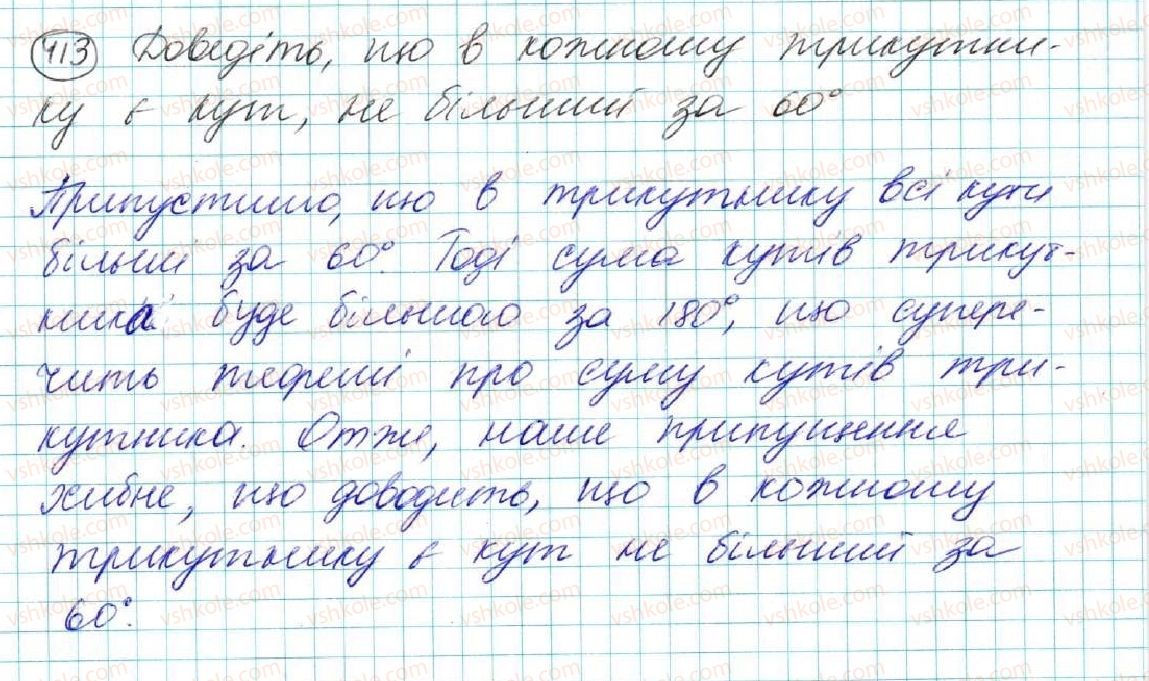 413 Доведіть, що в кожному трикутни-
ку є кут, не більший за 60°
Припустимо, що в трикутнику всі кути
більші за 60°. Тоді сума кутів трикут-
ника буде більшою за 180°, що супере-
чить теоремі про суму кутів три-
кутника. Отже, наше припущення
хибне, що доводить, що в кожному
трикутнику є кут не більший за
60°.
vshkole.com